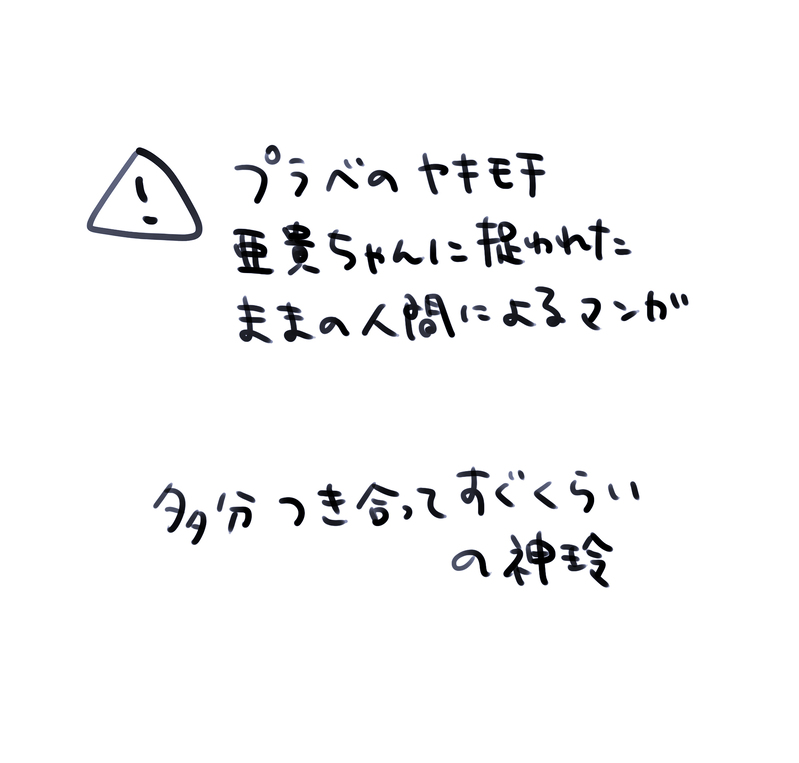 プラベのヤキモチ
亜貴ちゃんに捉われた
ままの人間によるマンガ
多分つき合ってすぐくらい
の神玲